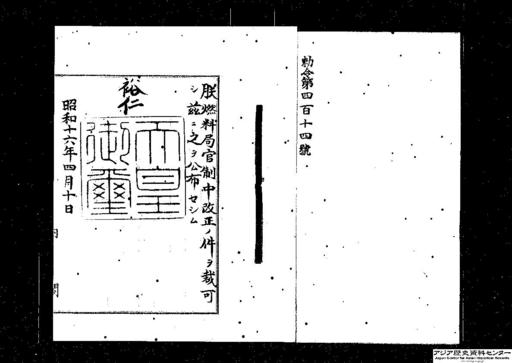 勅令第四百十四號
朕燃料局官制中改正ノ件ヲ裁可
シ茲ニ之ヲ公布セシム
裕仁
天皇
御璽
昭和十六年四月十日
内閣
アジア歴史資料センター
Japan Center for Asian Historical Records